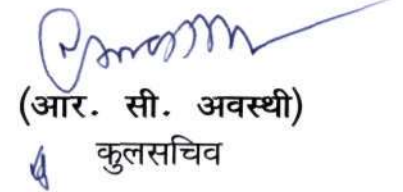 (आर. सी. अवस्थी)
कुलसचिव